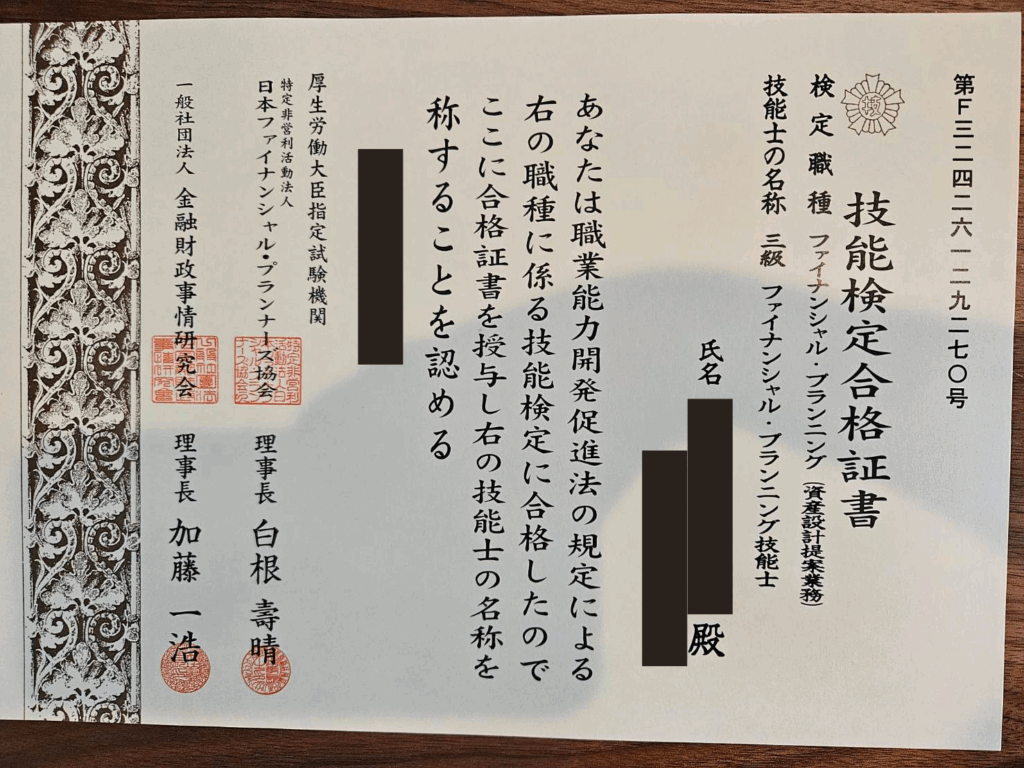 第F三二四二六一二九二七〇号
技能検定合格証書
技
検定職種 ファイナンシャル・プランニング(資産設計提案業務)
技能士の名称 三級 ファイナンシャル・プランニング技能士
氏名
殿
あなたは職業能力開発促進法の規定による
右の職種に係る技能検定に合格したので
ここに合格証書を授与し右の技能士の名称を
称することを認める
厚生労働大臣指定試験機関
特定非営利活動法人
日本ファイナンシャル・プランナーズ協会 理事長 白根 壽晴
一般社団法人 金融財政事情研究会 理事長 加藤 一浩